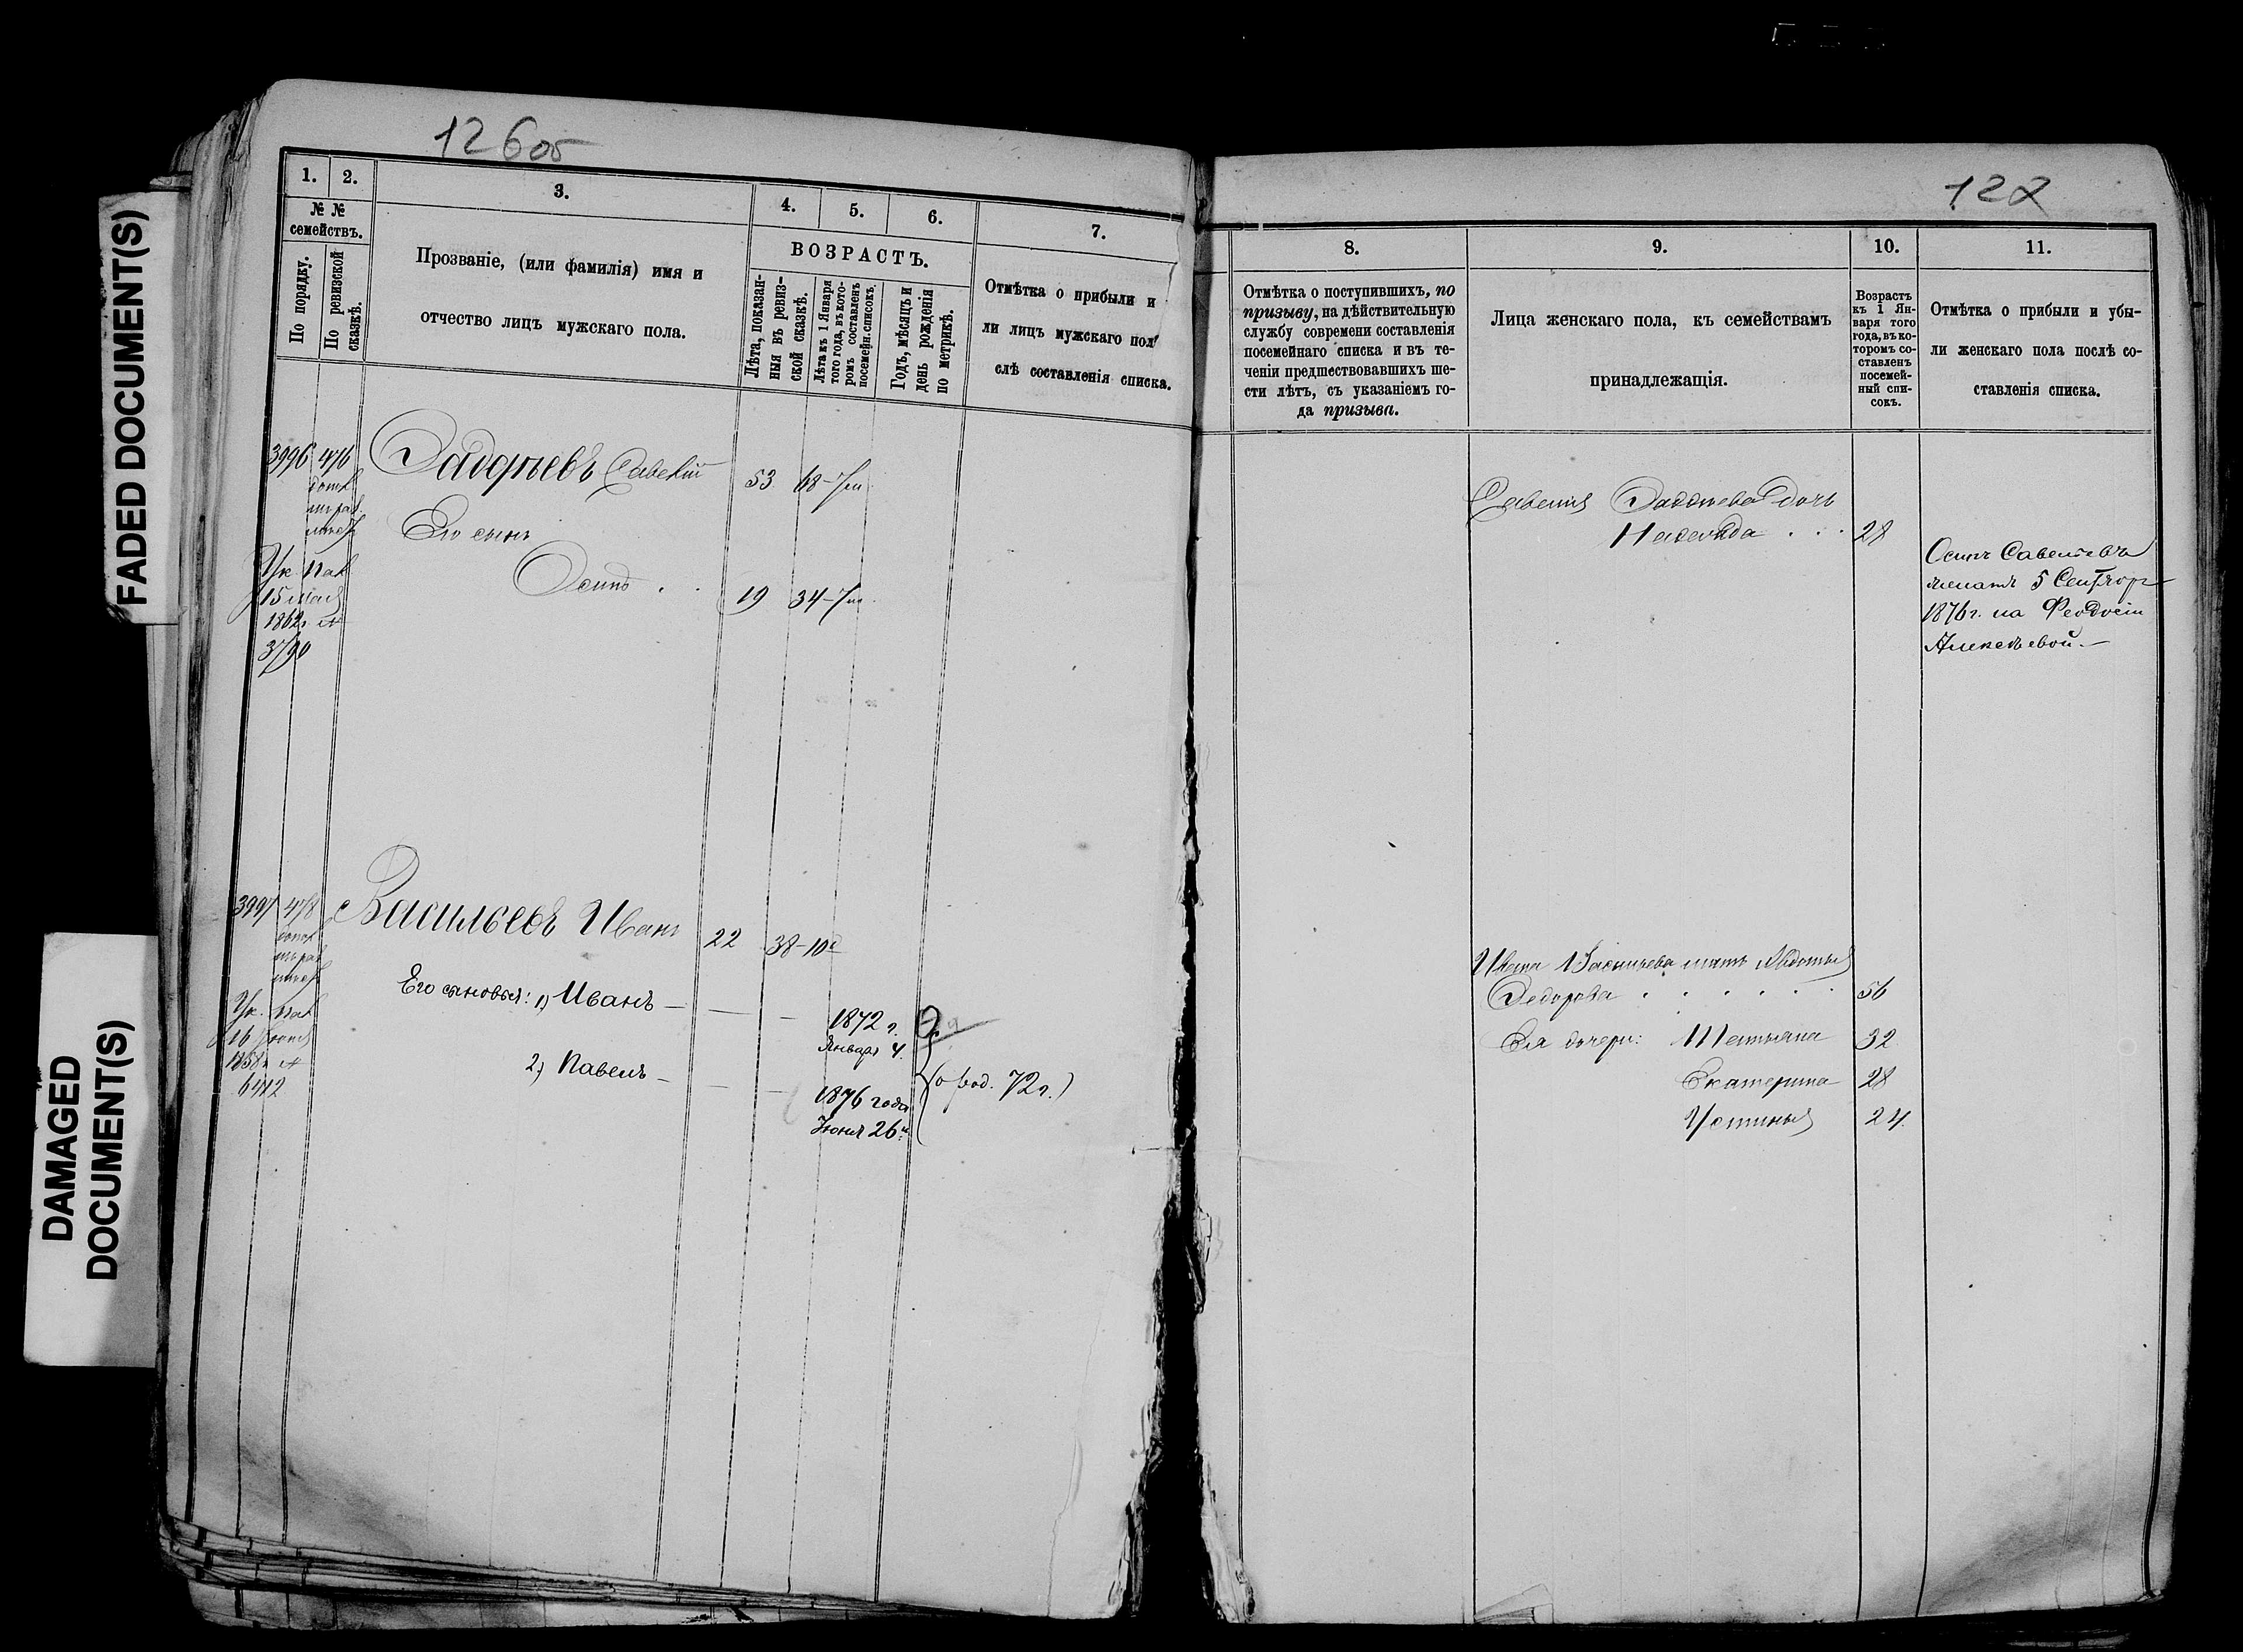 FADED DOCUMENT(S)
DAMAGED
DOCUMENT(S)
126 об
1. 2. 3. 4. 5. 6. 7.
№ №
семействъ.
По порядку.
По ревизской
сказкѣ.
Прозваніе, (или фамилія) имя и
отчество лицъ мужскаго пола.
ВОЗРАСТЪ.
Лѣта, показан-
ныя въ ревиз-
ской сказкѣ.
Лѣта къ 1 Января
того года, въ кото-
ромъ составленъ
посемейн. списокъ.
Годъ, мѣсяцъ и
день рожденія
по метрикѣ.
Отмѣтка о прибыли и
ли лицъ мужскаго пол
слѣ составленія списка.
3996 476
Савелій 53 68-
Его сынъ
Осипъ . . 19 34-
Ук.
15
1862 г.
3997 478
Васильевъ Иванъ 22 38-10
Его сыновья: 1) Иванъ — — —
1872 г.
Января 4.
2) Павелъ — — —
1876 года
Іюня 26
(о род. 72 г.)
Ук.
16
1858
6412
127
8. 9. 10. 11.
Отмѣтка о поступившихъ, по
призыву, на дѣйствительную
службу современи составленія
посемейнаго списка и въ те-
ченіи предшествовавшихъ ше-
сти лѣтъ, съ указаніемъ го-
да призыва.
Лица женскаго пола, къ семействамъ
принадлежащія.
Возрастъ
къ 1 Ян-
варя того
года, въ ко-
торомъ со-
ставленъ
посемей-
ный спи-
сокъ.
Отмѣтка о прибыли и убы-
ли женскаго пола послѣ со-
ставленія списка.
Савелія дочь
28
Осипъ Савельевъ
женатъ 5 Сентября
1876 г. на Феодосіи
Алексѣевой.—
Ивана Васильева мать Авдотья
Федорова . . . . . . 56
Ея дочери: Татьяна 32
Екатерина 28
Устинья 24.